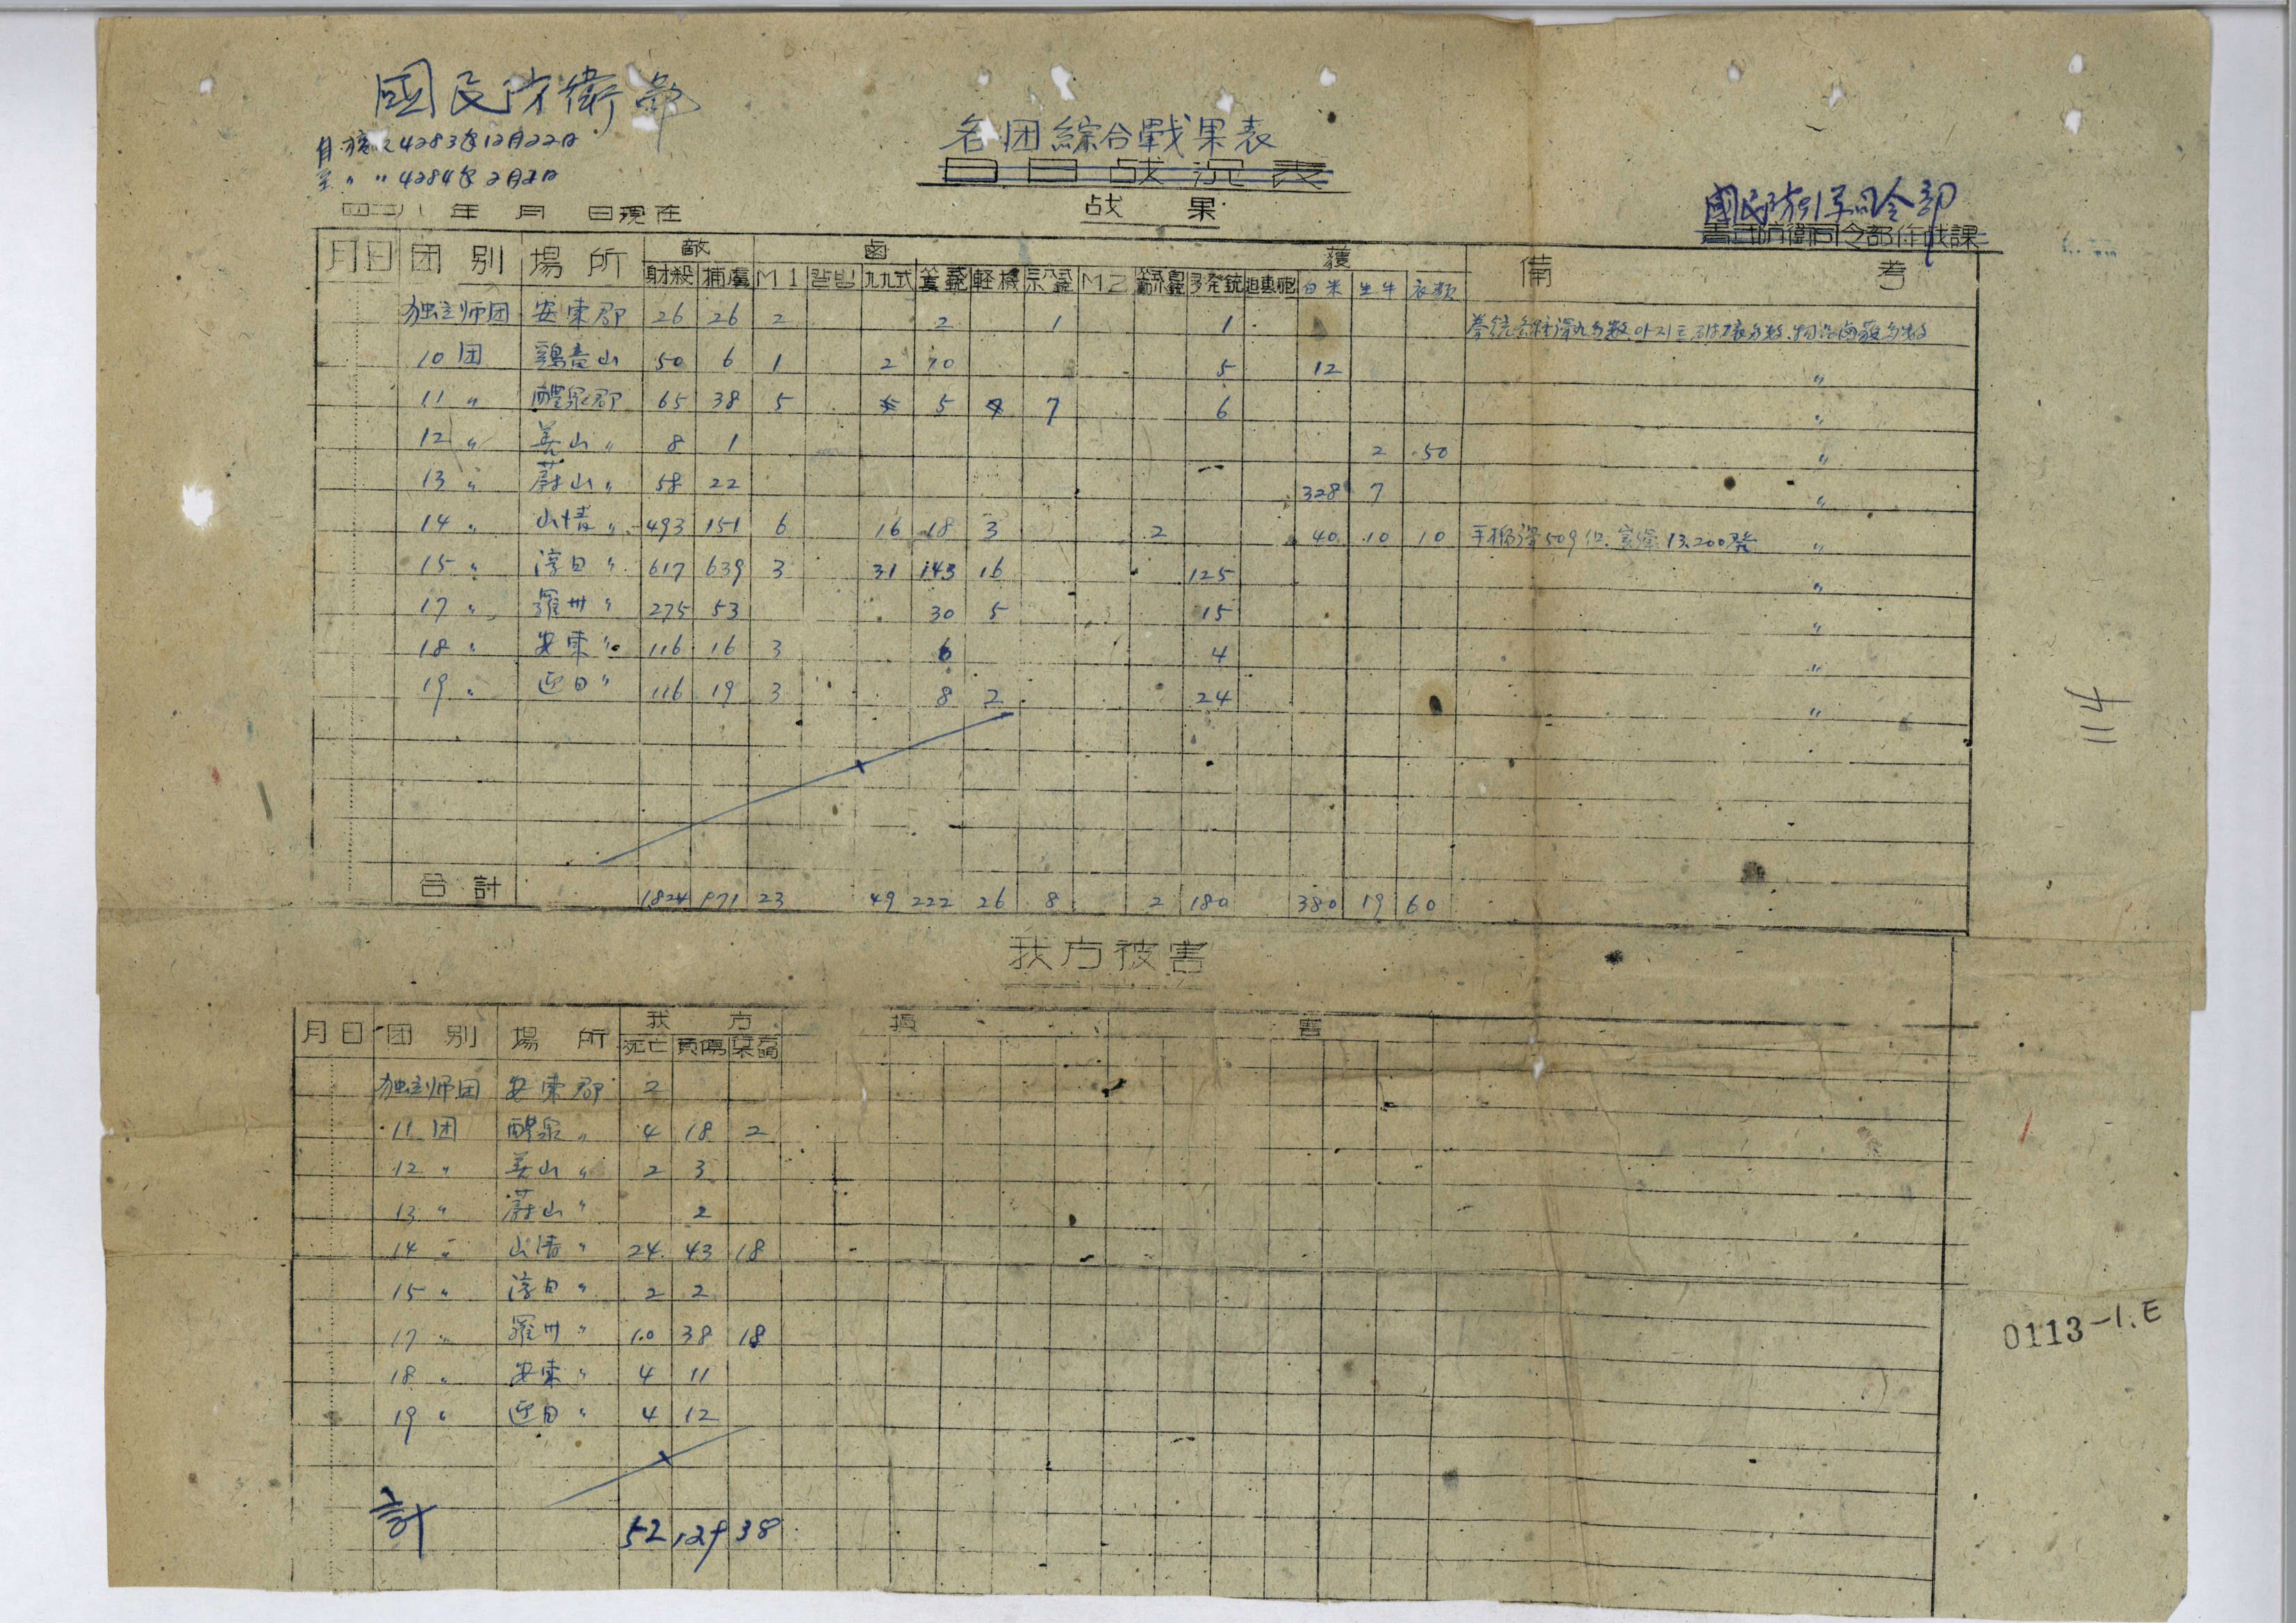 國民防衛部
自檀紀4283年12月22日
至 〃 〃 4284年2月2日
四二八 年 月 日現在
各团綜合戰果表
日日战況表
战果
國民防衛軍司令部
青年防衛司令部作战課
月日 团別 場所 敵 鹵 獲 備考
射殺 捕虜 M1 칼빈 九九式 軽機 M2 多発銃 迫撃砲 白米 生牛 衣類
独立师团 安東郡 26 26 2 2 1 1
10团 鷄竜山 50 6 1 2 10 5 12 〃
11〃 醴泉郡 65 38 5 5 7 6 〃
12〃 〃 8 1 2 50 〃
13〃 蔚山〃 58 22 328 7 〃
14〃 山清〃 493 151 6 16 18 3 2 40 10 10 手榴弾509 13,200発 〃
15〃 淳昌〃 617 639 3 31 143 16 125 〃
17〃 羅州〃 275 53 30 5 15 〃
18〃 安東〃 116 16 3 6 4 〃
19〃 迎日〃 116 19 3 8 2 24 〃
合計 1824 971 23 49 222 26 8 2 180 380 19 60
我方被害
月日 团別 場所 我方 損害
死亡 負傷
独立师团 安東郡 2
11团 醴泉〃 4 18 2
12〃 〃 2 3
13〃 蔚山〃 2
14〃 山清〃 24 43 18
15〃 淳昌〃 2 2
17〃 羅州〃 10 38 18
18〃 安東〃 4 11
19〃 迎日〃 4 12
計 52 129 38
114
0113-1.E